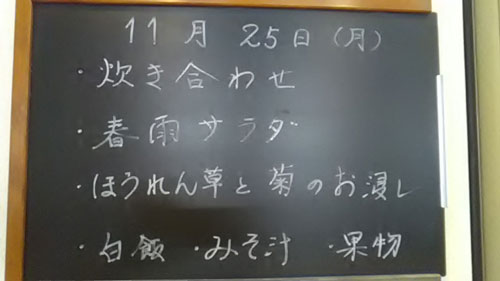 11月 25日(月)
・炊き合わせ
・春雨サラダ
・ほうれん草と菊のお浸し
・白飯 ・みそ汁 ・果物